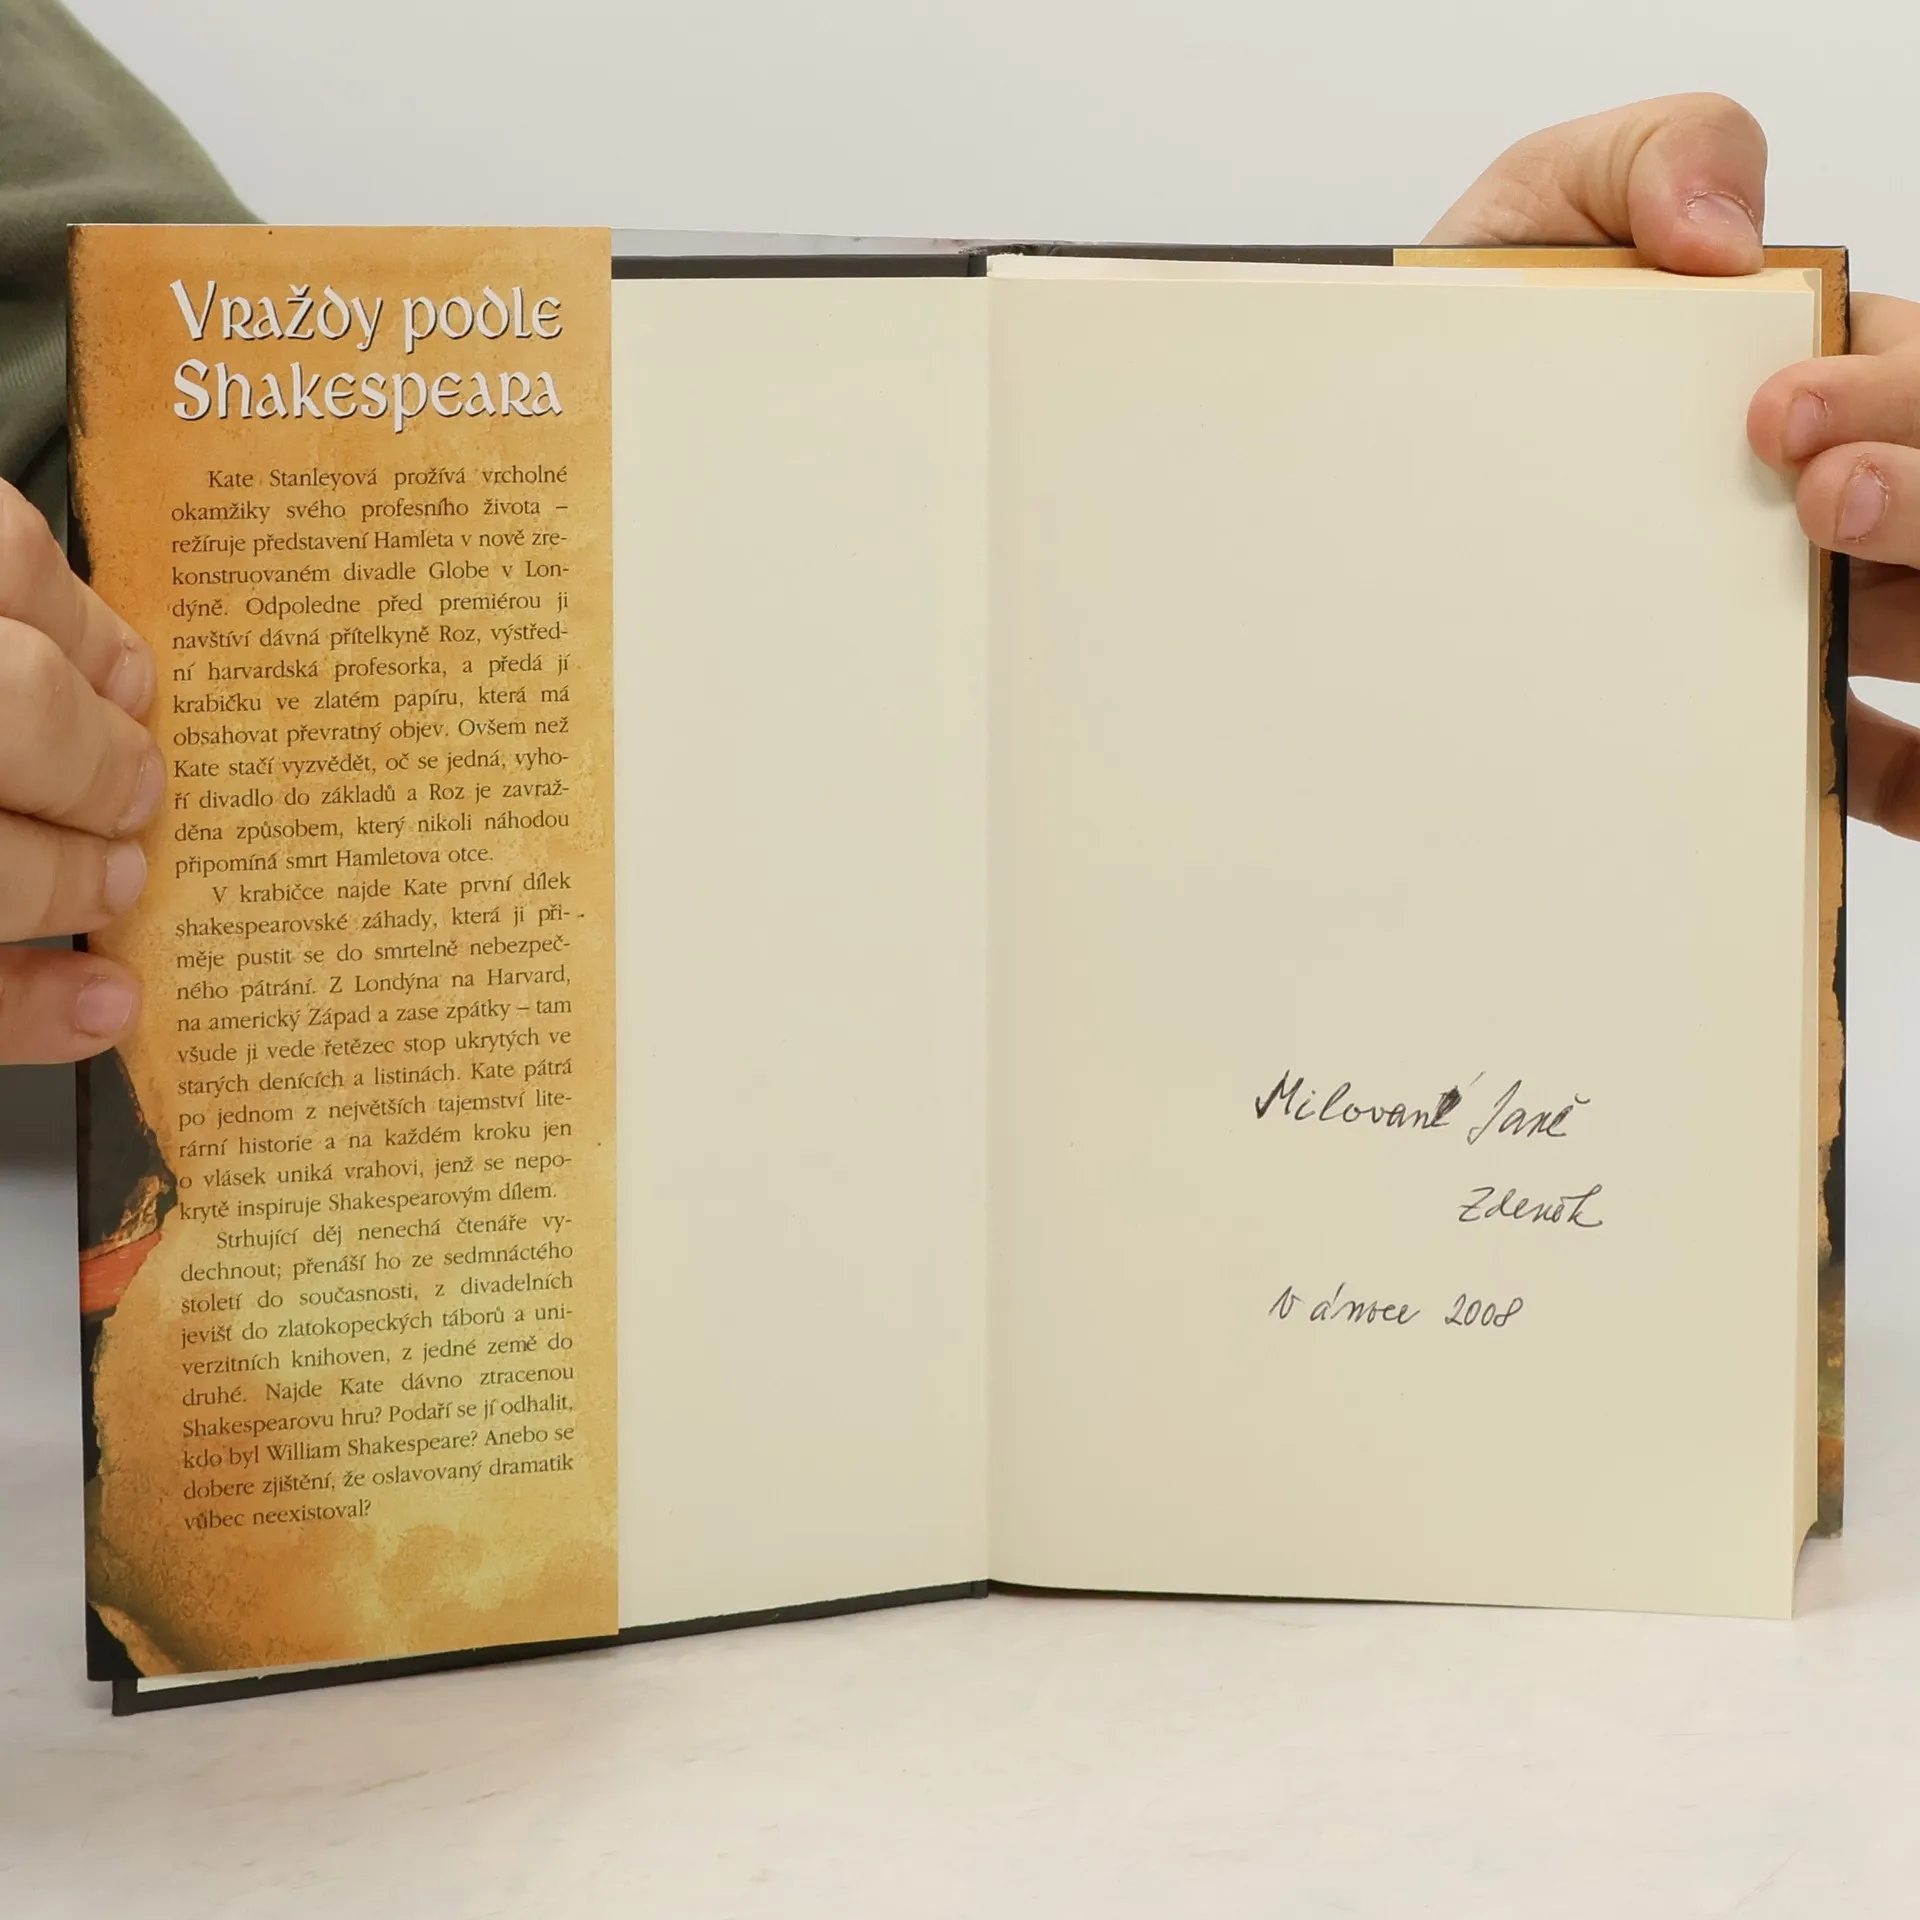 Vraždy podle
Shakespeara
Kate Stanleyová prožívá vrcholné
okamžiky svého profesního života –
režíruje představení Hamleta v nově zre-
konstruovaném divadle Globe v Lon-
dýně. Odpoledne před premiérou ji
navštíví dávná přítelkyně Roz, výstřed-
ní harvardská profesorka, a předá jí
krabičku ve zlatém papíru, která má
obsahovat převratný objev. Ovšem než
Kate stačí vyzvědět, oč se jedná, vyho-
ří divadlo do základů a Roz je zavraž-
děna způsobem, který nikoli náhodou
připomíná smrt Hamletova otce.
V krabičce najde Kate první dílek
shakespearovské záhady, která ji při-
měje pustit se do smrtelně nebezpeč-
ného pátrání. Z Londýna na Harvard,
na americký Západ a zase zpátky – tam
všude ji vede řetězec stop ukrytých ve
starých denících a listinách. Kate pátrá
po jednom z největších tajemství lite-
rární historie a na každém kroku jen
o vlásek uniká vrahovi, jenž se nepo-
krytě inspiruje Shakespearovým dílem.
Strhující děj nenechá čtenáře vy-
dechnout; přenáší ho ze sedmnáctého
století do současnosti, z divadelních
jevišť do zlatokopeckých táborů a uni-
verzitních knihoven, z jedné země do
druhé. Najde Kate dávno ztracenou
Shakespearovu hru? Podaří se jí odhalit,
kdo byl William Shakespeare? Anebo se
dobere zjištění, že oslavovaný dramatik
vůbec neexistoval?
Milované Janě
Zdeněk
V únoce 2008